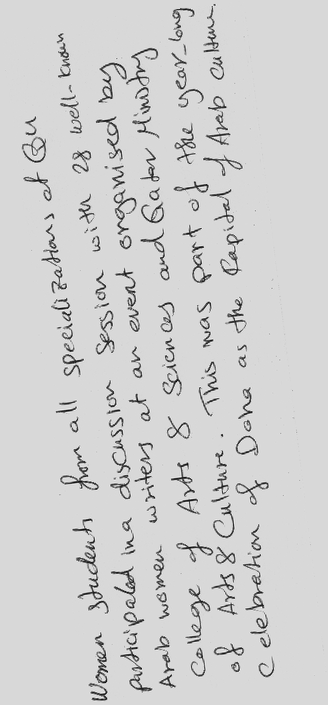 Women students from all specializations at QU
participated in a discussion session with 28 well-known
Arab women writers at an event organised by
College of Arts & Sciences and Qatar Ministry
of Arts & Culture. This was part of the year-long
Celebration of Doha as the Capital of Arab Culture.